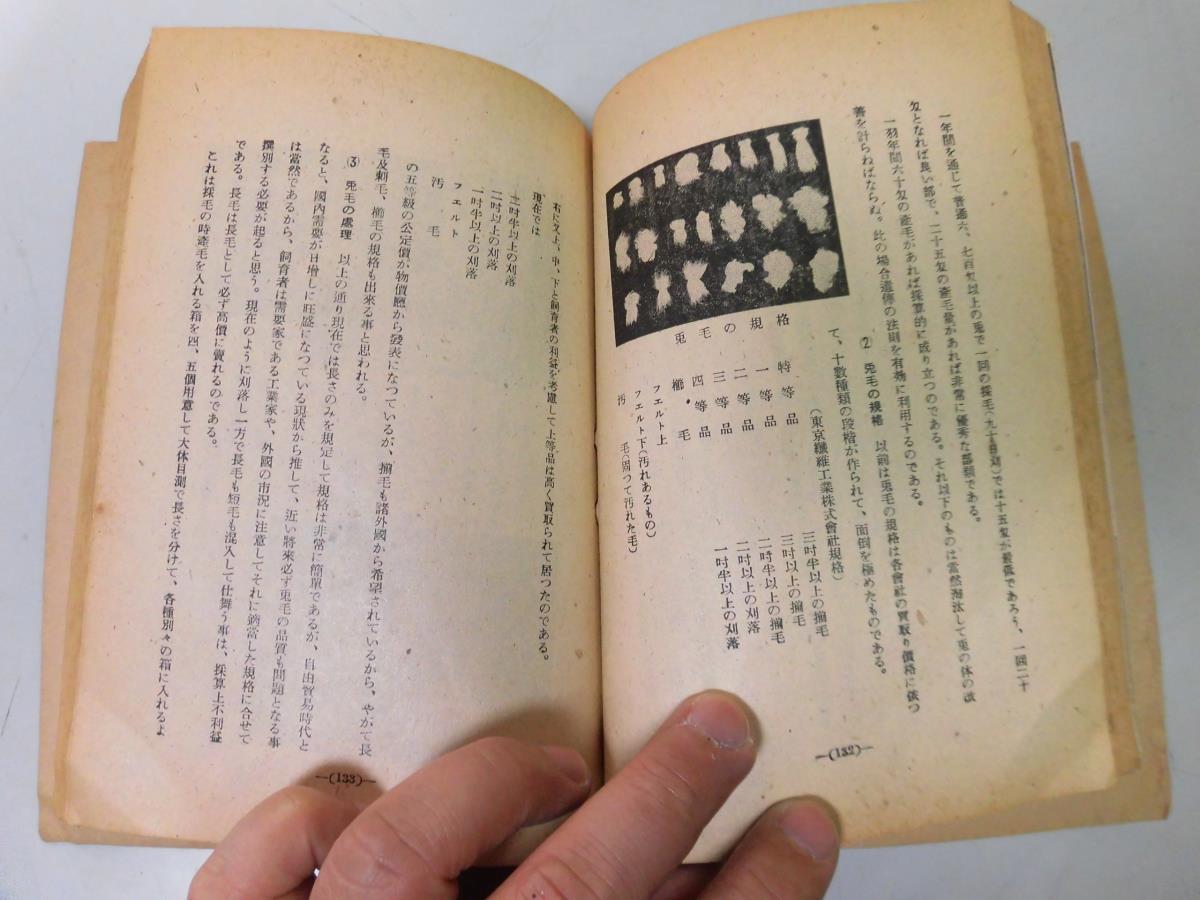 一年間を通じて普通六、七百匁以上の兎で一回の採毛(九十日刈)では十五匁が最低であろう、一回二十
匁となれば良い部で、二十五匁の產毛量があれば非常に優秀な部類である。それ以下のものは當然淘汰して兎の体の改
善を計らねばならぬ。此の場合遺傳の法則を有効に利用するのである。
一羽年間六十匁の產毛があれば採算的に成り立つのである。
② 兎毛の規格 以前は兎毛の規格は各會社の買取り價格に依つ
て、十數種類の段楷が作られて、面倒を極めたものである。
(東京纎維工業株式會社規格)
特等品 三吋半以上の摘毛
一等品 三吋以上の摘毛
二等品 二吋半以上の摘毛
三等品 二吋以上の刈落
四等品 一吋半以上の刈落
櫛・毛
フエルト上
フエルト下(汚れあるもの)
汚 毛(固つて汚れた毛)
兎毛の規格
—(132)—
右に又上、中、下と飼育者の利益を考慮して上等品は高く買取られて居つたのである。
現在では
二吋半以上の刈落
二吋以上の刈落
一吋半以上の刈落
フエルト
汚 毛
の五等級の公定價が物價廳から發表になつているが、摘毛も諸外國から希望されているから、やがて長
毛及刺毛、櫛毛の規格も出來る事と思われる。
③ 兎毛の處理 以上の通り現在では長さのみを規定して規格は非常に簡單であるが、自由貿易時代と
なると、國內需要が日增しに旺盛になつている現狀から推して、近い將來必ず兎毛の品質も問題となる事
は當然であるから、飼育者は需要家である工業家や、外國の市況に注意してそれに適當した規格に合せて
撰別する必要が起ると思う。現在のように刈落し一方で長毛も短毛も混入して仕舞う事は、採算上不利益
である。長毛は長毛として必ず高價に賣れるのである。
これは採毛の時產毛を入れる箱を四、五個用意して大体目測で長さを分けて、各種別々の箱に入れるよ
—(133)—